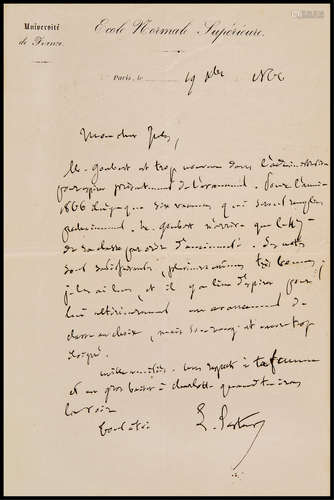 Université
de France
Ecole Normale Supérieure.
Paris, le 19 Xbre
Mon cher Jules,
M. Goubert est trop nouveau dans l'administration
pour espérer présentement de l'avancement. Pour l'année
1866 il n'y a que six vacances qui seront
M. Goubert n'arrive que le
de sa classe par ordre d'ancienneté. Ses notes
sont satisfaisantes, plusieurs même très bonnes,
je les ai lues, et il y a lieu d'espérer pour
lui ultérieurement un avancement de
classe au choix, mais son rang est encore trop
éloigné.
Mille amitiés. Mes respects à ta femme
et un gros baiser à Charlotte quand tu iras
la voir
Tout à toi
L. Pasteur